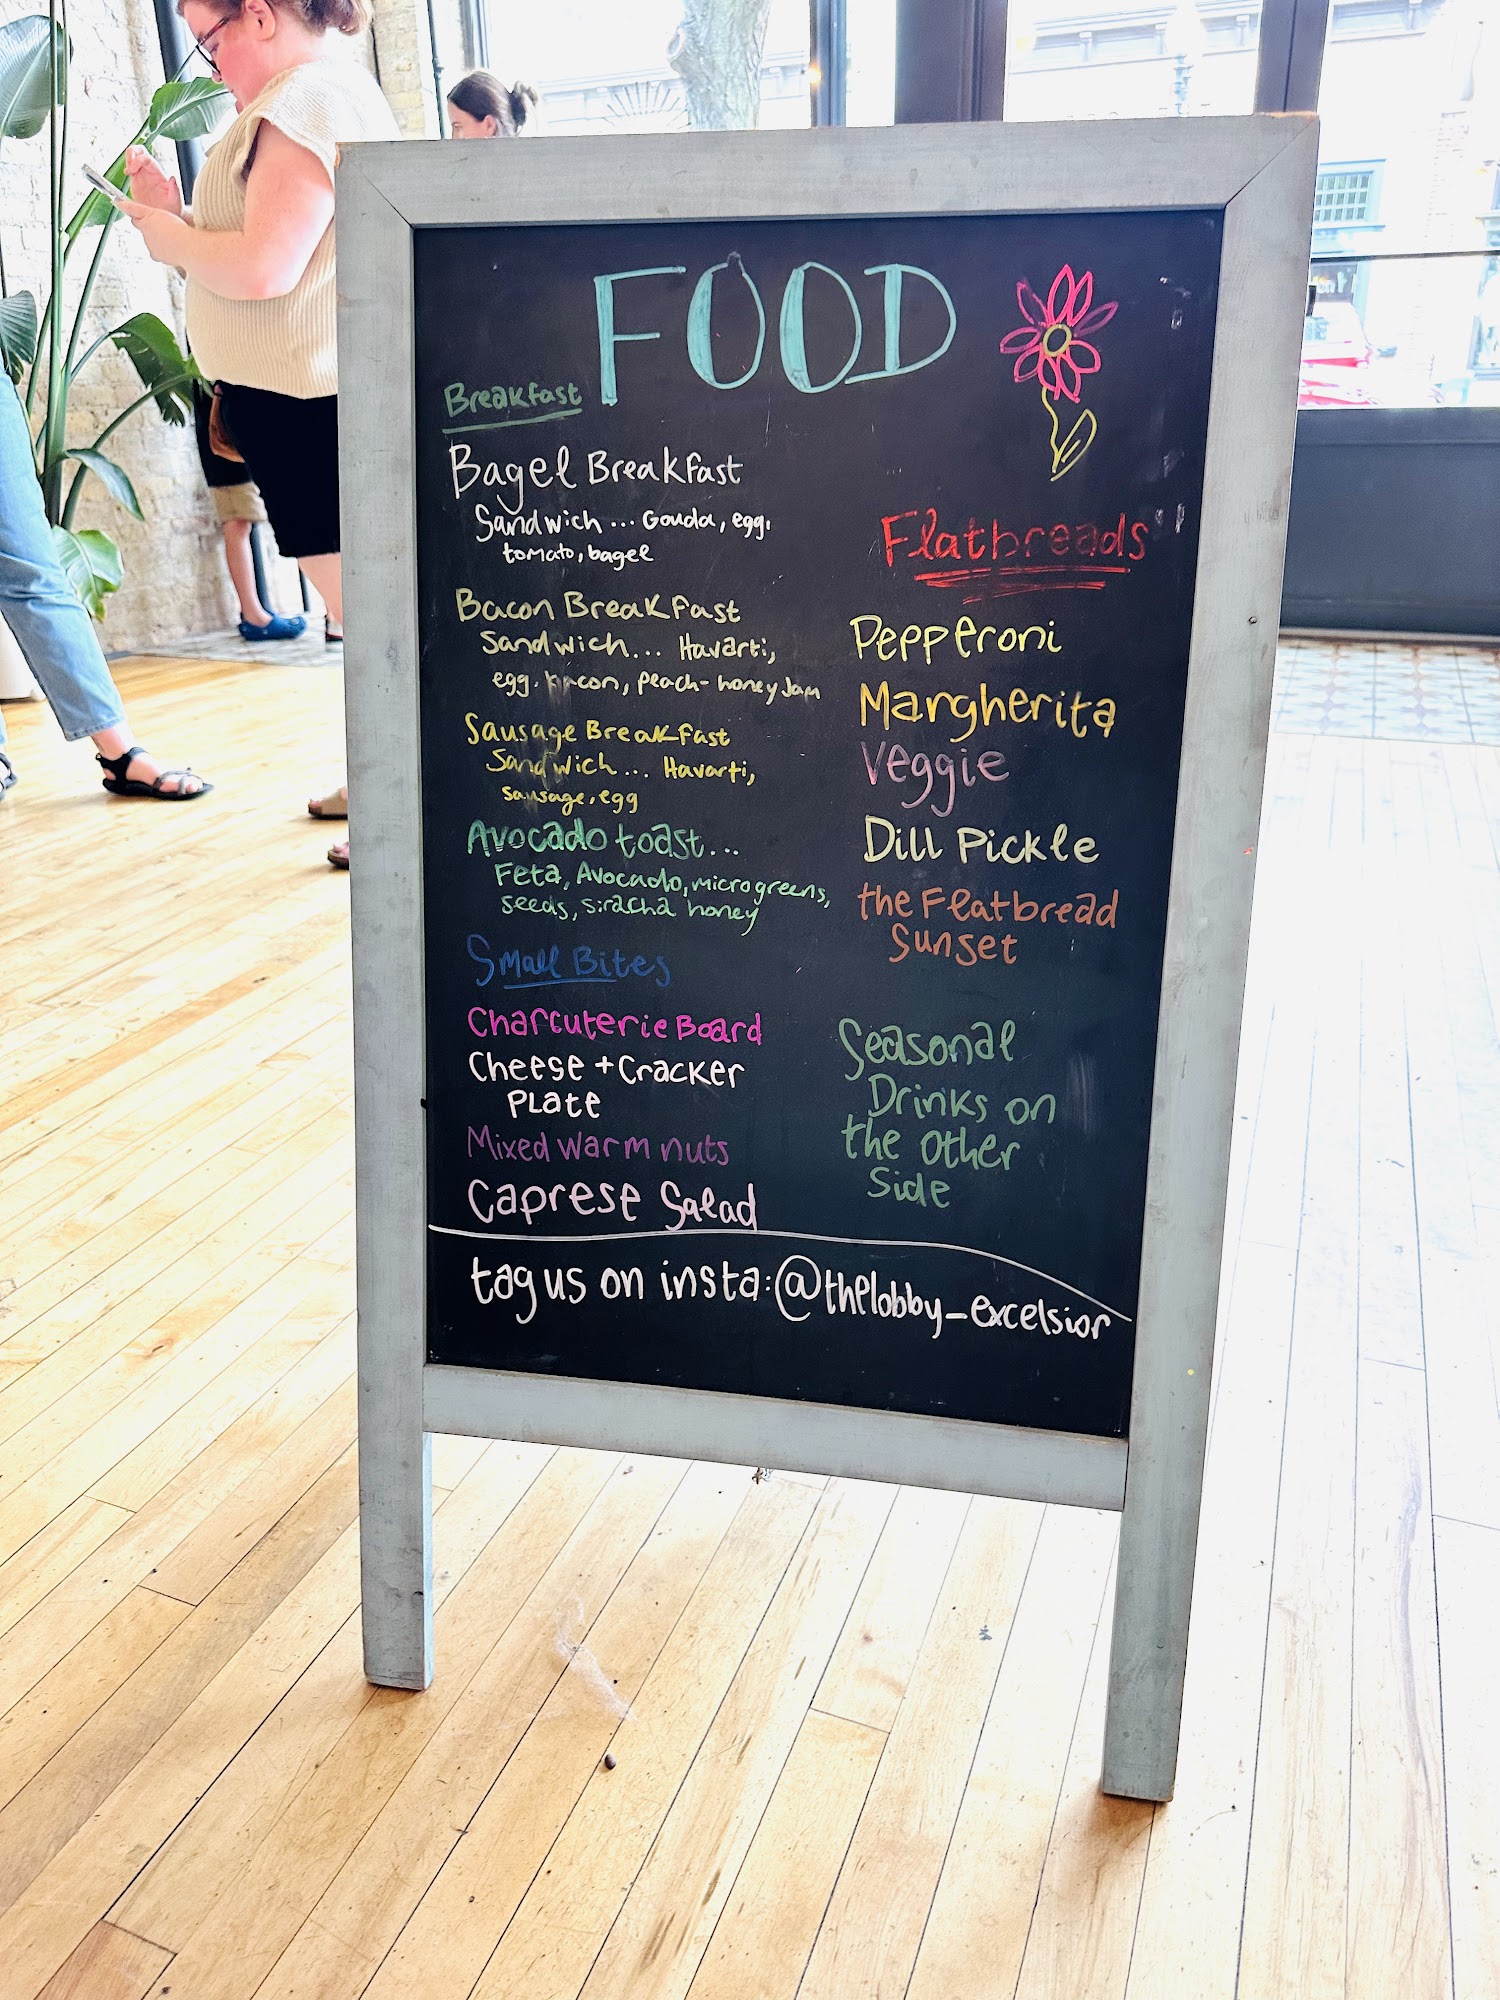 FOOD
Breakfast
Bagel Breakfast
Sandwich... Gouda, egg,
tomato, bagel
Bacon Breakfast
Sandwich... Havarti,
egg, bacon, peach-honey Jam
Sausage Breakfast
Sandwich... Havarti,
sausage, egg
Avocado toast...
Feta, Avocado, microgreens,
seeds, siracha honey
Small Bites
Charcuterie Board
Cheese + Cracker
PLate
Mixed warm nuts
Caprese Salad
Flatbreads
Pepperoni
Margherita
Veggie
Dill Pickle
the Flatbread
Sunset
Seasonal
Drinks on
the other
Side
tag us on insta: @thelobby_excelsior